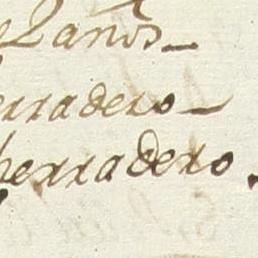 2 años
erradero
herradero.